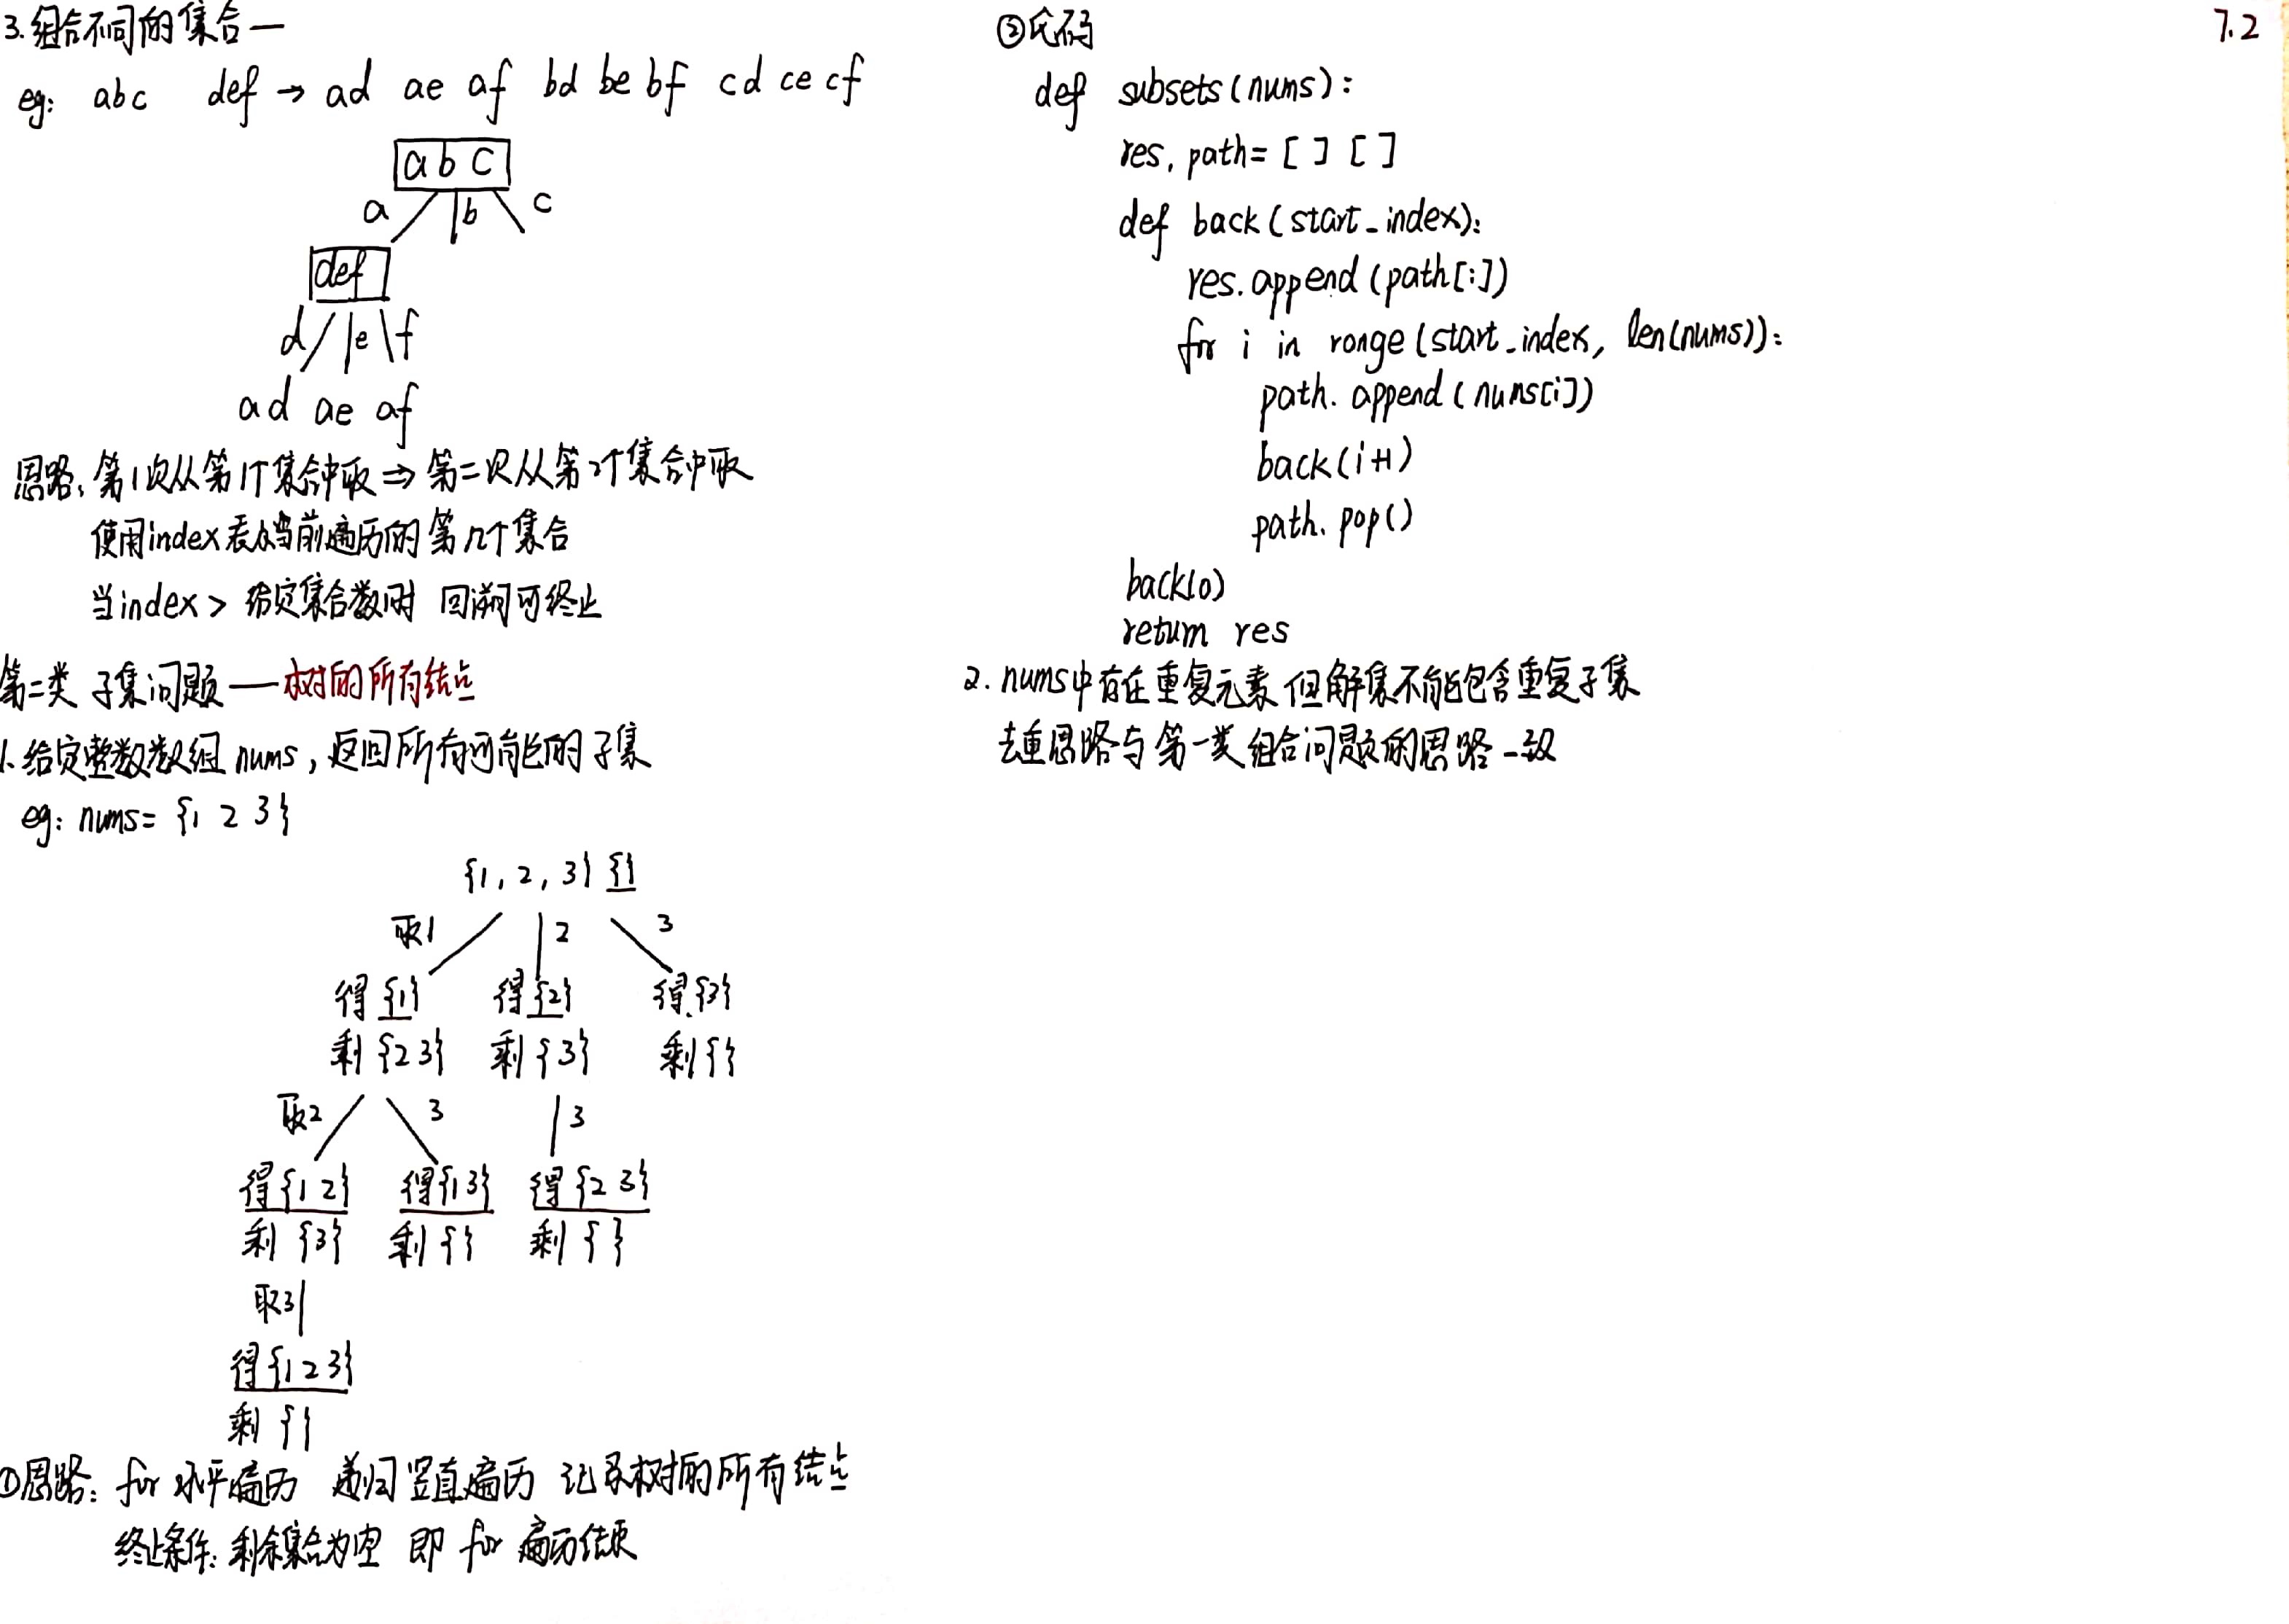 3.组合不同的集合一
eg: abc def → ad ae af bd be bf cd ce cf
a b c
a b c
def
d e f
ad ae af
思路: 第1次从第1个集合中取 ⇒ 第二次从第2个集合中取
使用index表从当前遍历的第几个集合
当index > 给定集合数时 回溯可终止
第二类 子集问题 —— 树的所有结点
1. 给定整数数组 nums, 返回所有可能的子集
eg: nums= {1 2 3}
{1, 2, 3} {}
取1 2 3
得{1} 得{2} 得{3}
剩{2 3} 剩{3} 剩{}
取2 3 3
得{1 2} 得{13} 得{2 3}
剩{3} 剩{} 剩{ }
取3
得{1 2 3}
剩{}
①思路: for 水平遍历 递归竖直遍历 记录树的所有结点
终止条件: 剩余集合为空 即 for 遍历结束
②代码
def subsets(nums):
res, path= [ ] [ ]
def back(start_index):
res.append(path[:])
for i in range(start_index, len(nums)):
path.append(nums[i])
back(i+1)
path.pop()
back(0)
return res
2. nums中存在重复元素 但解集不能包含重复子集
去重思路与第一类组合问题的思路一致
7.2